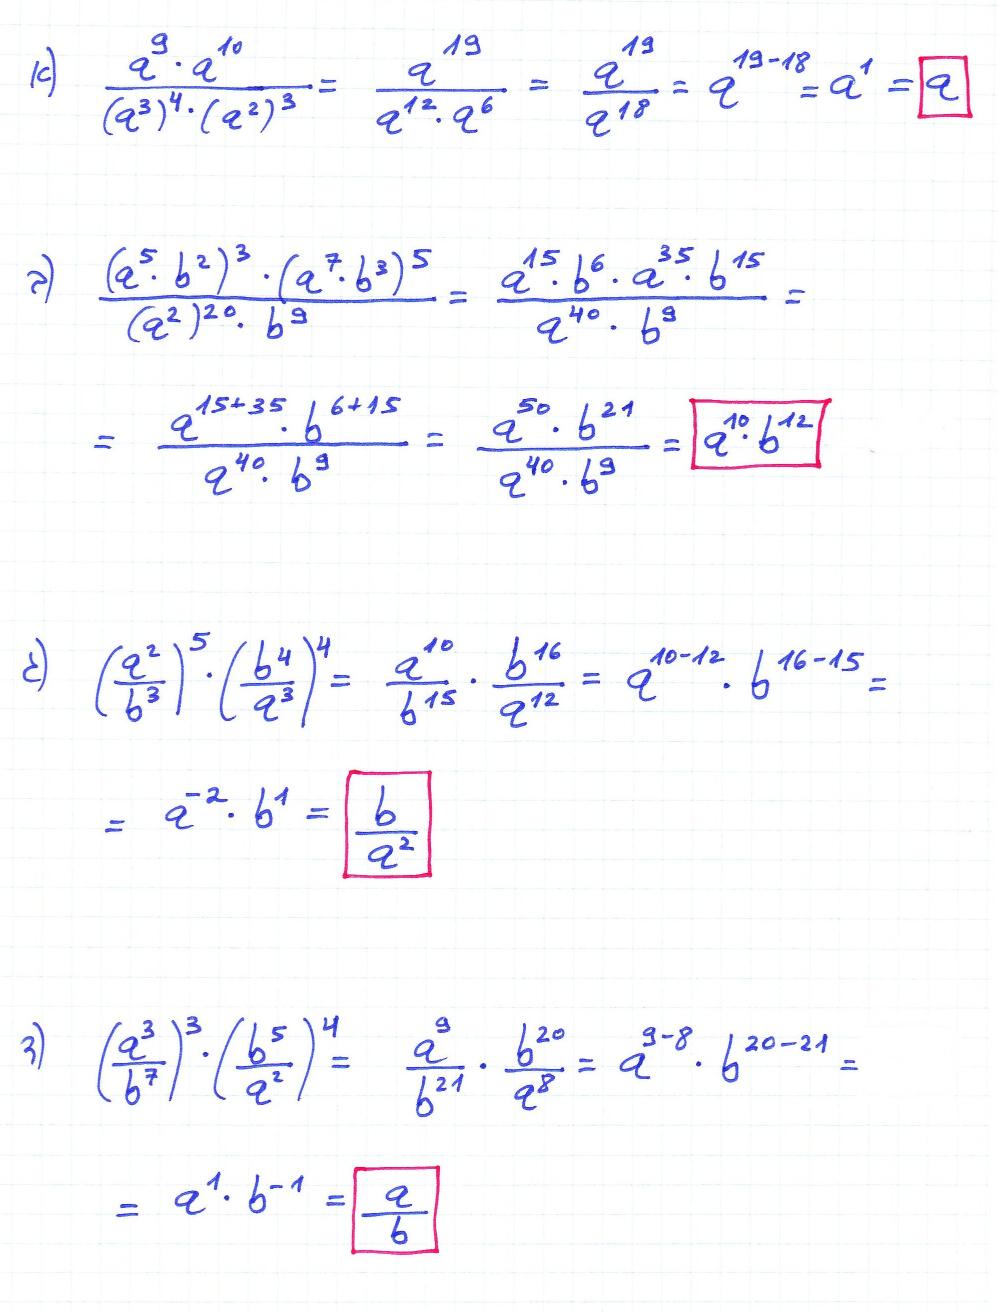 א) (a^9 · a^10)/((a^3)^4 · (a^2)^3) = a^19/(a^12 · a^6) = a^19/a^18 = a^(19-18) = a^1 = a
ב) ((a^5 · b^2)^3 · (a^7 · b^3)^5)/((a^2)^20 · b^9) = (a^15 · b^6 · a^35 · b^15)/(a^40 · b^9) =
= (a^(15+35) · b^(6+15))/(a^40 · b^9) = (a^50 · b^21)/(a^40 · b^9) = a^10 · b^12
ג) (a^2/b^3)^5 · (b^4/a^3)^4 = a^10/b^15 · b^16/a^12 = a^(10-12) · b^(16-15) =
= a^-2 · b^1 = b/a^2
ד) (a^3/b^7)^3 · (b^5/a^2)^4 = a^9/b^21 · b^20/a^8 = a^(9-8) · b^(20-21) =
= a^1 · b^-1 = a/b